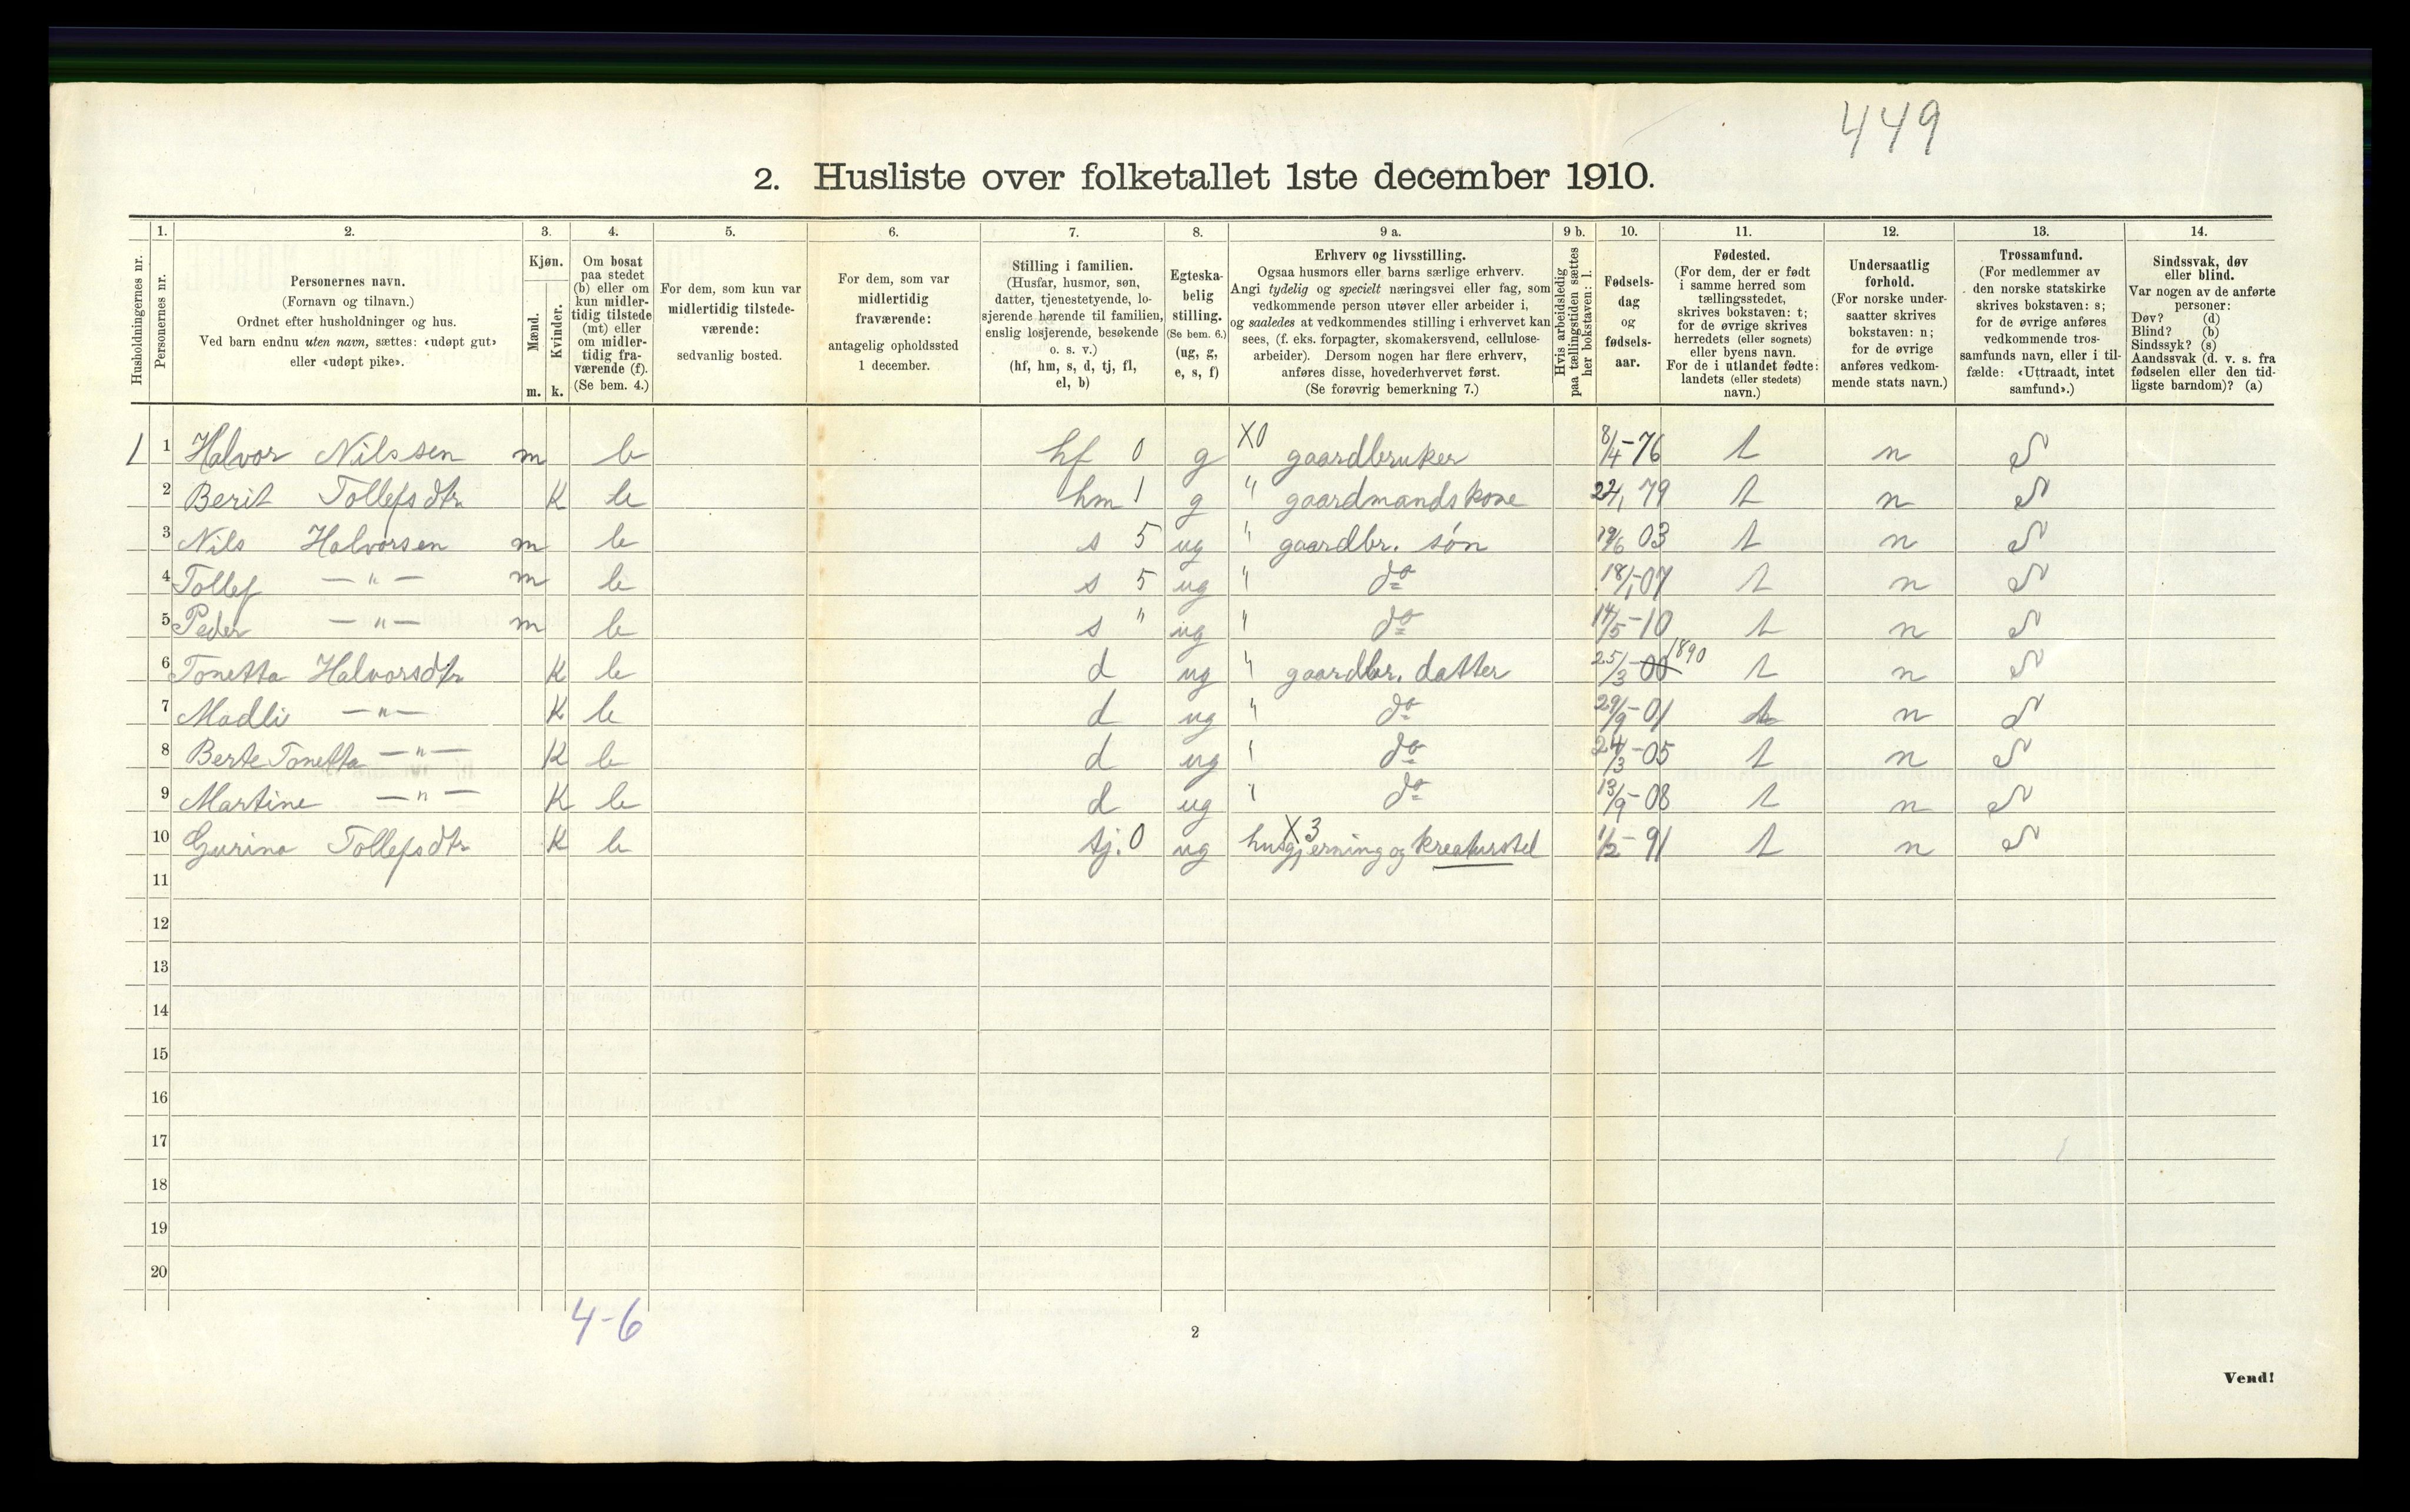 449
2. Husliste over folketallet 1ste december 1910.
Husholdningernes nr.
1. Personernes nr.
2. Personernes navn.
(Fornavn og tilnavn.)
Ordnet efter husholdninger og hus.
Ved barn endnu uten navn, sættes: «udøpt gut»
eller «udøpt pike».
3. Kjøn.
Mænd. m.
Kvinder. k.
4. Om bosat
paa stedet
(b) eller om
kun midler-
tidig tilstede
(mt) eller
om midler-
tidig fra-
værende (f).
(Se bem. 4.)
5. For dem, som kun var
midlertidig tilstede-
værende:
sedvanlig bosted.
6. For dem, som var
midlertidig
fraværende:
antagelig opholdssted
1 december.
7. Stilling i familien.
(Husfar, husmor, søn,
datter, tjenestetyende, lo-
sjerende hørende til familien,
enslig losjerende, besøkende
o. s. v.)
(hf, hm, s, d, tj, fl,
el, b)
8. Egteska-
belig
stilling.
(Se bem. 6.)
(ug, g,
e, s, f)
9 a. Erhverv og livsstilling.
Ogsaa husmors eller barns særlige erhverv.
Angi tydelig og specielt næringsvei eller fag, som
vedkommende person utøver eller arbeider i,
og saaledes at vedkommendes stilling i erhvervet kan
sees, (f. eks. forpagter, skomakersvend, cellulose-
arbeider). Dersom nogen har flere erhverv,
anføres disse, hovederhvervet først.
(Se forøvrig bemerkning 7.)
9 b. Hvis arbeidsledig
paa tællingstiden sættes
her bokstaven: l.
10. Fødsels-
dag
og
fødsels-
aar.
11. Fødested.
(For dem, der er født
i samme herred som
tællingsstedet,
skrives bokstaven: t;
for de øvrige skrives
herredets (eller sognets)
eller byens navn.
For de i utlandet fødte:
landets (eller stedets)
navn.)
12. Undersaatlig
forhold.
(For norske under-
saatter skrives
bokstaven: n;
for de øvrige
anføres vedkom-
mende stats navn.)
13. Trossamfund.
(For medlemmer av
den norske statskirke
skrives bokstaven: s;
for de øvrige anføres
vedkommende tros-
samfunds navn, eller i til-
fælde: «Uttraadt, intet
samfund».)
14. Sindssvak, døv
eller blind.
Var nogen av de anførte
personer:
Døv? (d)
Blind? (b)
Sindssyk? (s)
Aandssvak (d. v. s. fra
fødselen eller den tid-
ligste barndom)? (a)
1 1 Halvor Nilssen m b hf 0 g X0 gaardbruker 8/4-76 t n S
2 Berit Tollefsdtr K b hm 1 g " gaardmandskone 79 t n S
3 Nils Halvorsen m b s 5 ug " gaardbr. søn 03 t n S
4 Tollef — " — m b s 5 ug " do 18/1-07 t n S
5 Peder — " — m b s " ug " do 14/5-10 t n S
6 Tonetta Halvorsdtr K b d ug " gaardbr. datter 25/3-00 1890 t n S
7 Madli — " — K b d ug " do 29/9-01 t n S
8 Berte Tonetta — " — K b d ug " do 24/3-05 t n S
9 Martine — " — K b d ug " do 13/9-08 t n S
10 Gurina Tollefsdtr K b tj. 0 ug X3 husgjerning og kreaturstel 1/2-91 t n S
11
12
13
14
15
16
17
18
19
20
4-6
2
Vend!